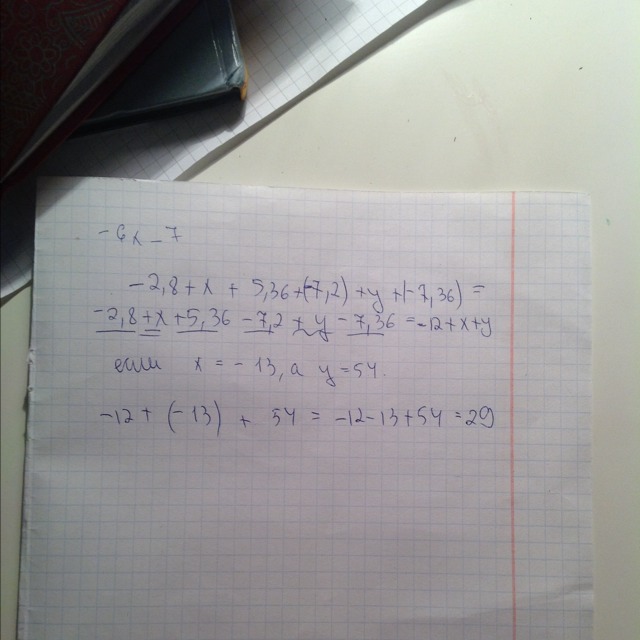 -6x-7
-2,8+x+5,36+(-7,2)+y+(-7,36)=
-2,8+x+5,36-7,2+y-7,36=-12+x+y
если x=-13, а y=54.
-12+(-13)+54=-12-13+54=29